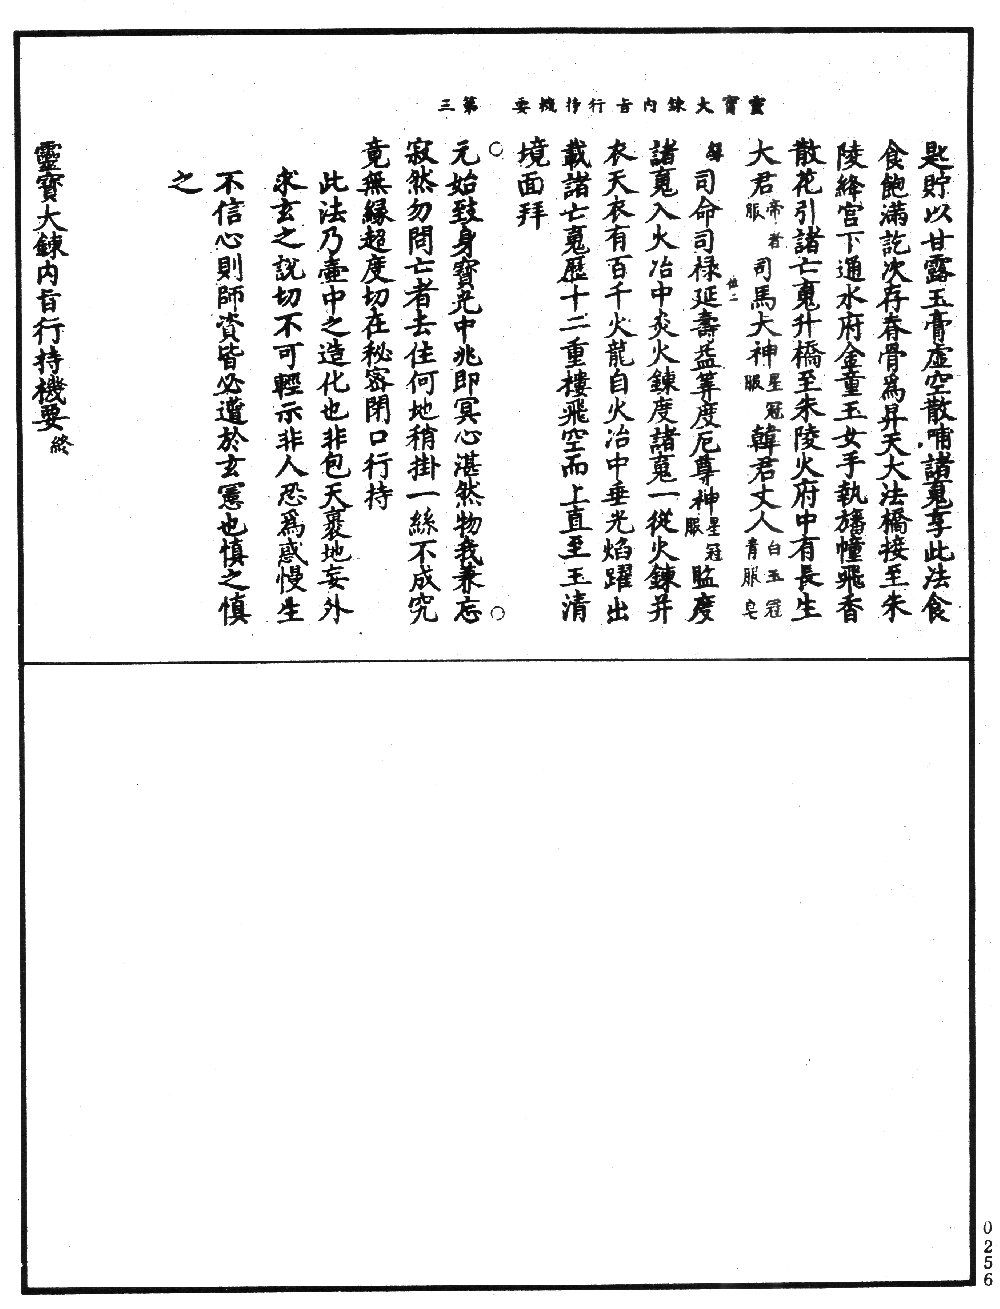 靈寶大錬内旨行持機要　第三
匙貯以甘露玉膏虚空散哺諸䰟享此法食
食飽滿訖次存脊骨爲昇天大法橋接至朱
陵絳宫下通水府金童玉女手執旛幢飛香
散花引諸亡䰟升橋至朱陵火府中有長生
大君帝者服司馬大神星冠服韓君丈人白玉冠青服皂
司命司禄位二延壽益筭度厄尊神星冠服監度
諸䰟入火冶中炎火錬度諸䰟一從火錬并
衣天衣有百千火龍自火冶中垂光焰躍出
載諸亡䰟歷十二重樓飛空而上直至玉清
境面拜
○　○
元始致身寶光中兆即冥心湛然物我兼忘
寂然勿問亡者去住何地稍掛一絲不成究
竟無緣超度切在秘密閉口行持
此法乃壷中之造化也非包天裹地妄外
求玄之説切不可輕示非人恐爲惑慢生
不信心則師資皆必遭於玄憲也慎之慎
之
靈寶大錬内旨行持機要終
0256